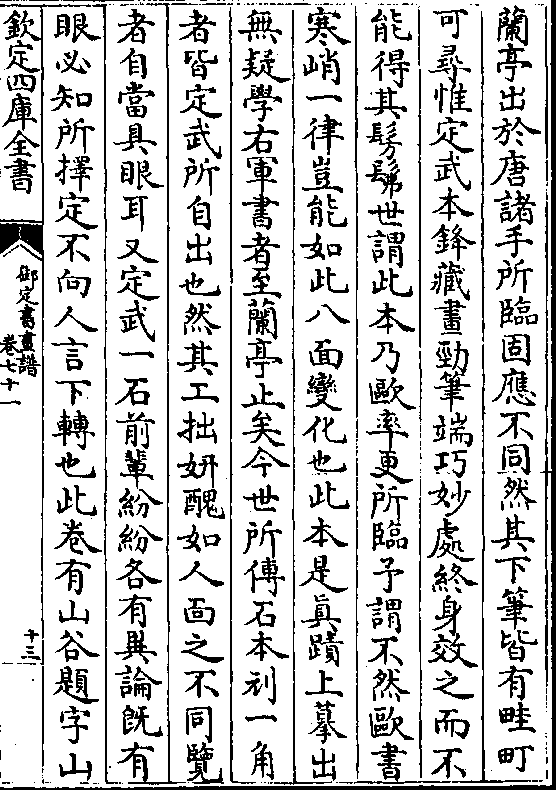 蘭亭出於唐諸手所臨固應不同然其下筆皆有畦町
可尋惟定武本鋒藏畫勁筆端巧妙處終身效之而不
能得其髣髴世謂此本乃歐率更所臨予謂不然歐書
寒峭一律豈能如此八面變化也此本是真蹟上摹出
無疑學右軍書者至蘭亭止矣今世所傳石本刓一角
者皆定武所自出也然其工拙妍醜如人面之不同覽
者自當具眼耳又定武一石前輩紛紛各有異論既有
眼必知所擇定不向人言下轉也此卷有山谷題字山
欽定四庫全書
御定書畫譜
卷七十一
十三